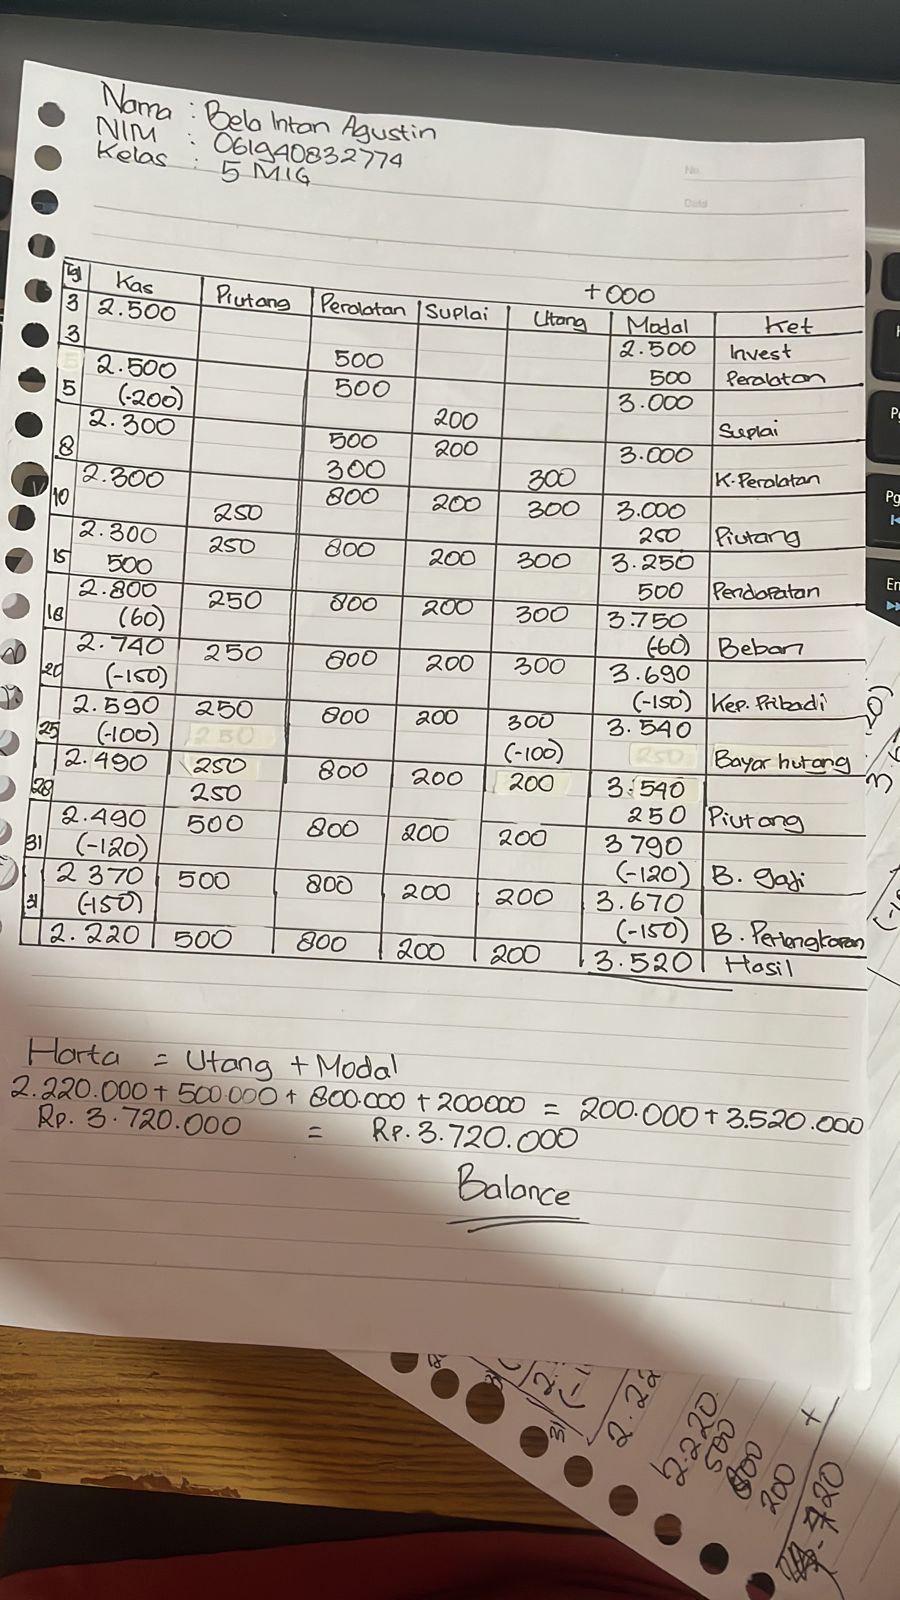 Nama : Bela Intan Agustin
NIM : 061940832774
Kelas : 5 MIG
No.
Date
+000
Tgl Kas Piutang Peralatan Suplai Utang Modal Ket
3 2.500 2.500 Invest
3 500 500 Peralatan
2.500 500 3.000
5 (-200) 200 Suplai
2.300 500 200 3.000
8 300 300 K. Peralatan
2.300 800 200 300 3.000
10 250 250 Piutang
2.300 250 800 200 300 3.250
15 500 500 Pendapatan
2.800 250 800 200 300 3.750
18 (60) (-60) Beban
2.740 250 800 200 300 3.690
20 (-150) (-150) Kep. Pribadi
2.590 250 800 200 300 3.540
25 (-100) 250 (-100) 250 Bayar hutang
2.490 250 800 200 200 3.540
28 250 250 Piutang
2.490 500 800 200 200 3790
31 (-120) (-120) B. gaji
2370 500 800 200 200 3.670
31 (-150) (-150) B. Perlengkapan
2.220 500 800 200 200 3.520 Hasil
Harta = Utang + Modal
2.220.000 + 500.000 + 800.000 + 200000 = 200.000 + 3.520.000
Rp. 3.720.000 = Rp. 3.720.000
Balance
2.220
500
800
200 +